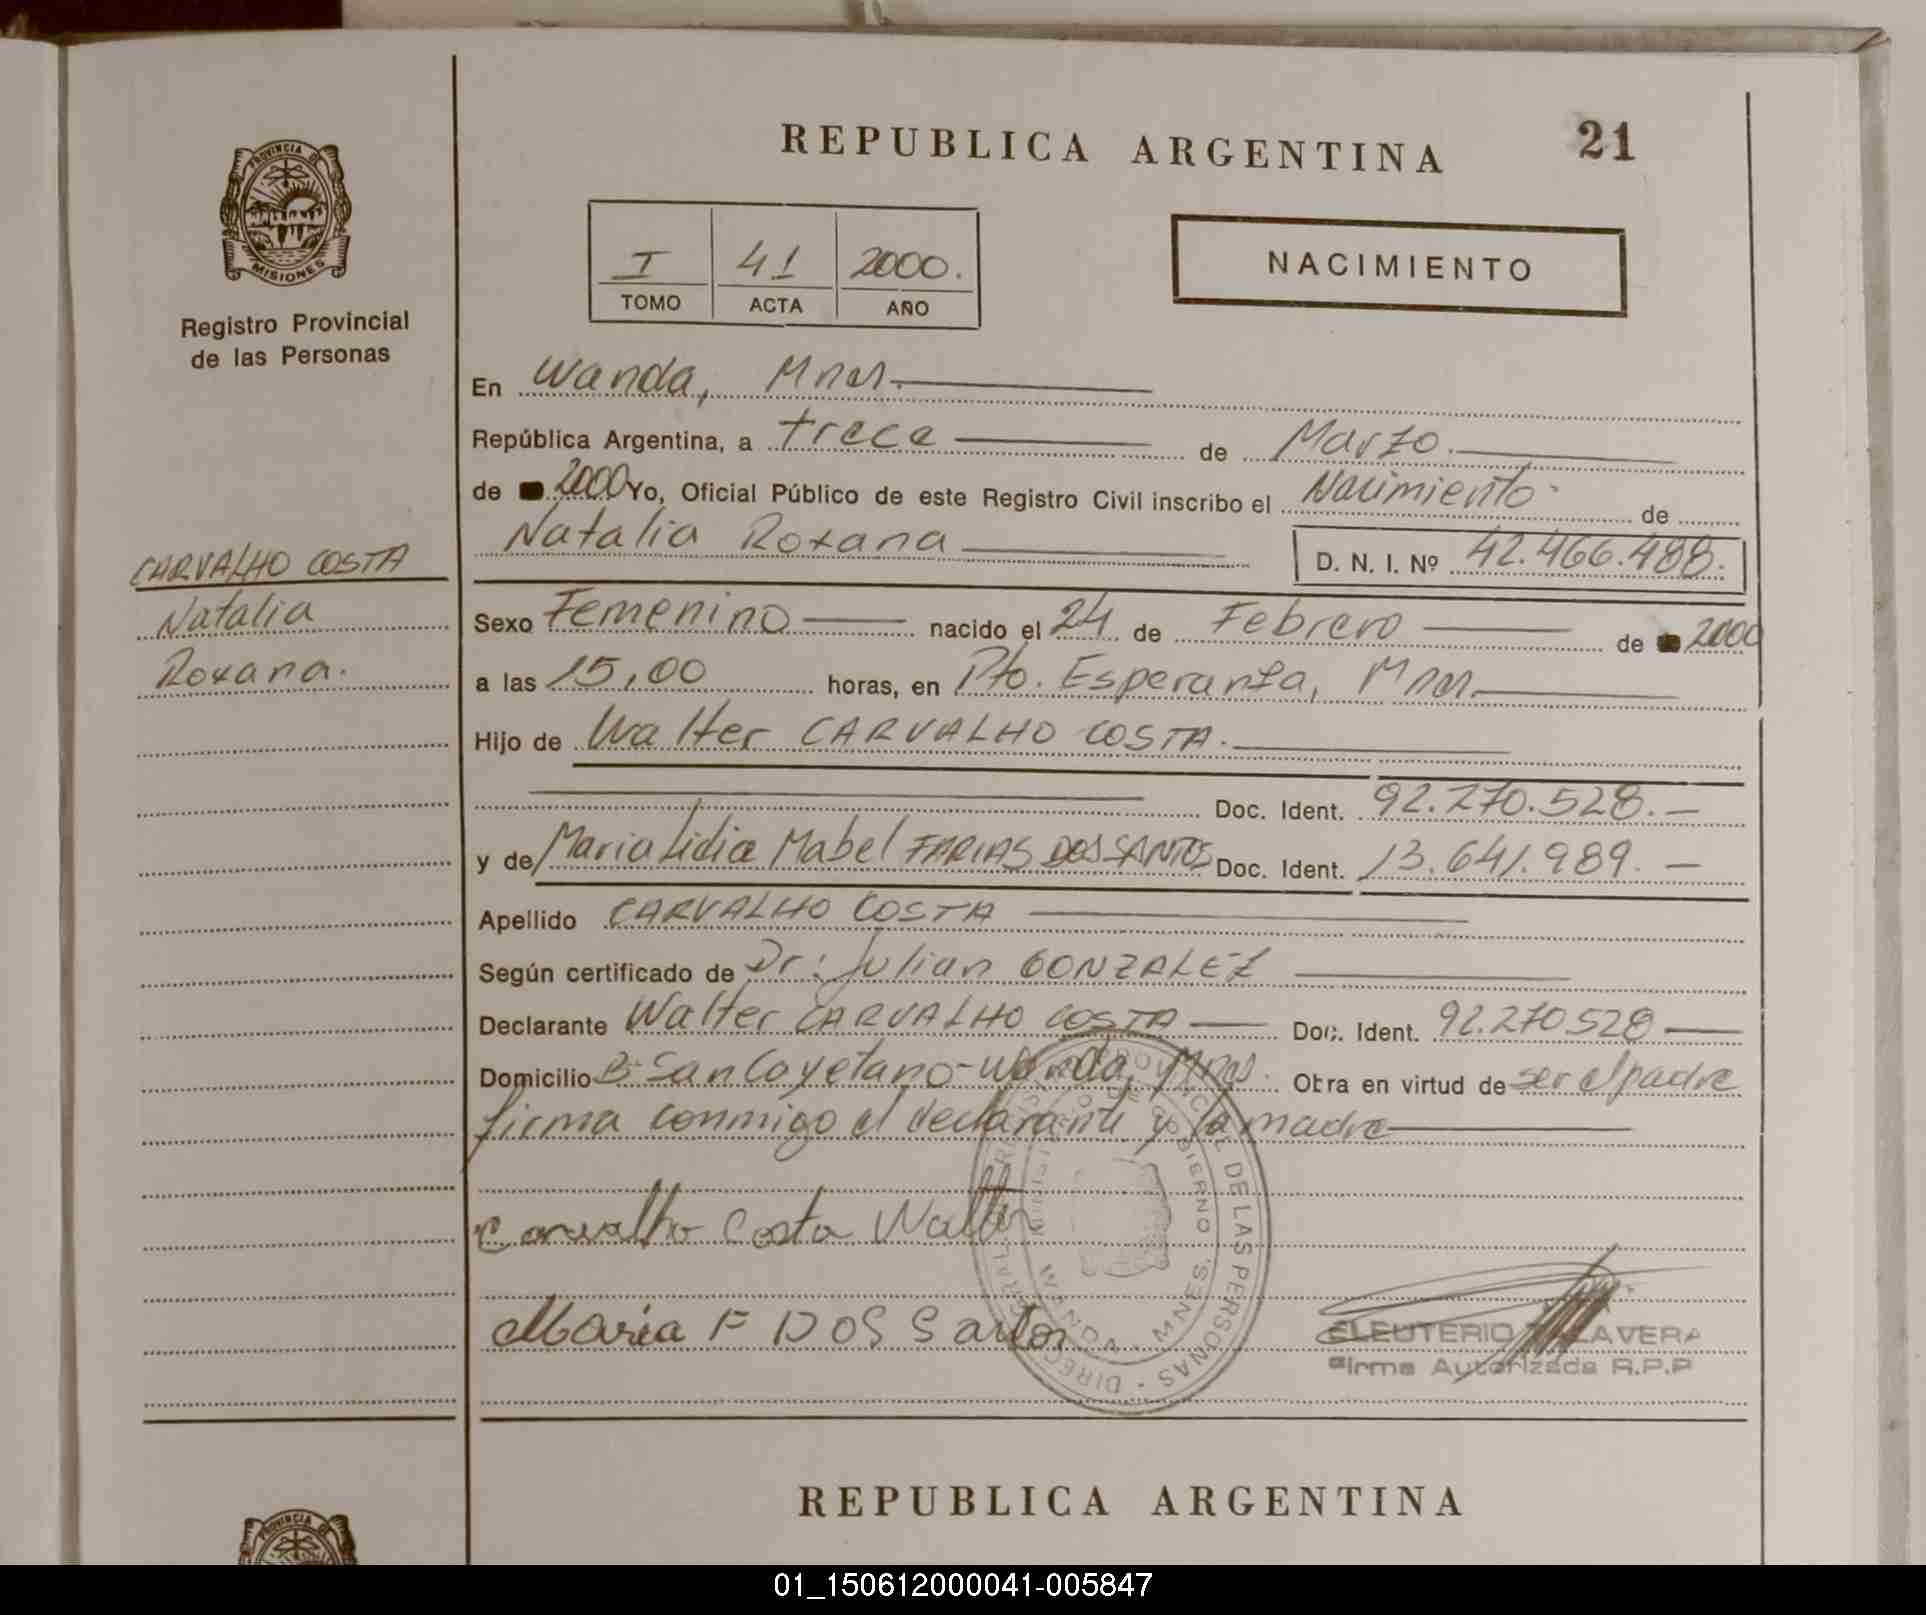 REPUBLICA ARGENTINA
21
PROVINCIA DE
MISIONES
Registro Provincial
de las Personas
I 41 2000.
TOMO ACTA AÑO
NACIMIENTO
En Wanda, Mnes.
República Argentina, a trece de Marzo.
de 2000 Yo, Oficial Público de este Registro Civil inscribo el Nacimiento de
Natalia Roxana D. N. I. Nº 42.466.488.
CARVALHO COSTA
Natalia
Roxana.
Sexo Femenino nacido el 24 de Febrero de 2000
a las 15,00 horas, en Pto. Esperanza, Mnes.
Hijo de Walter CARVALHO COSTA.
Doc. Ident. 92.270.528.-
y de Maria Lidia Mabel FARIAS DOS SANTOS Doc. Ident. 13.641.989.-
Apellido CARVALHO COSTA
Según certificado de Dr: Julian GONZALEZ
Declarante Walter CARVALHO COSTA Doc. Ident. 92.270528
Domicilio Bº San Cayetano-Wanda, Mnes. Obra en virtud de ser el padre
firma conmigo el declarante y la madre
Carvalho Costa Walter
Maria F DOS Santos
DE LAS PERSONAS
GOBIERNO
WANDA - MNES.
ELEUTERIO TALAVERA
Firma Autorizada R.P.P
REPUBLICA ARGENTINA
PROVINCIA DE
01_150612000041-005847